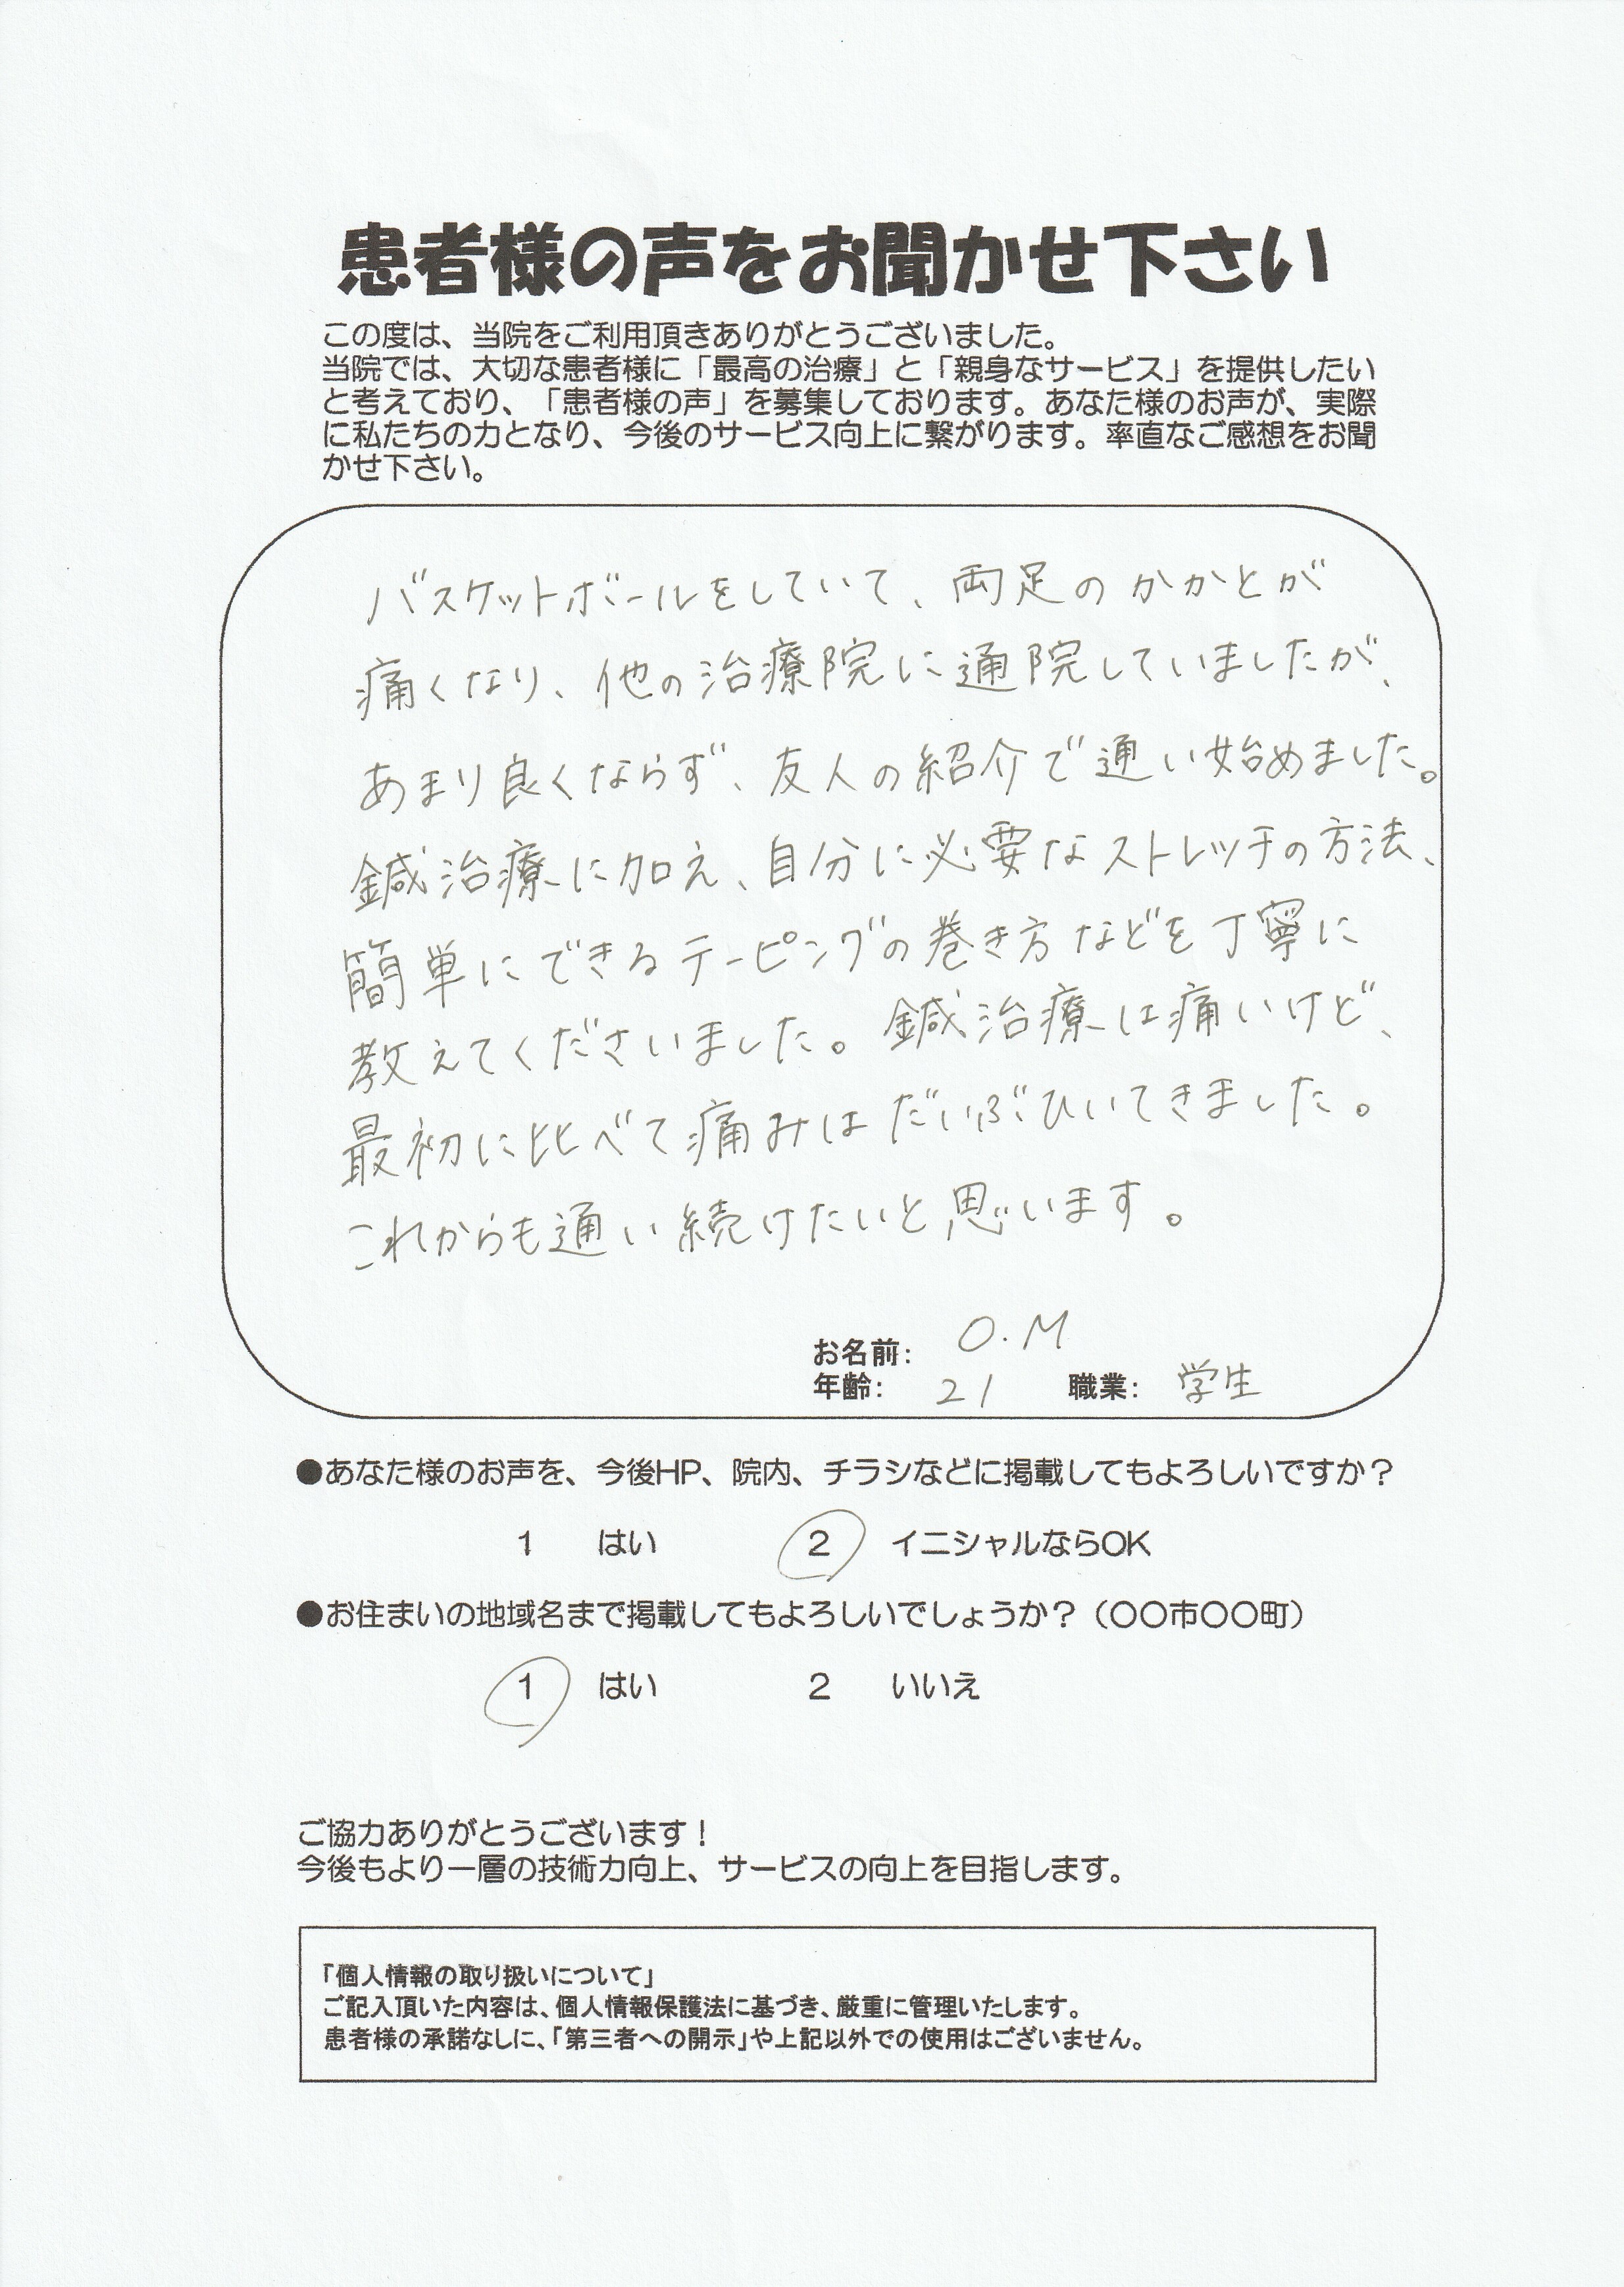 患者様の声をお聞かせ下さい
この度は、当院をご利用頂きありがとうございました。
当院では、大切な患者様に「最高の治療」と「親身なサービス」を提供したい
と考えており、「患者様の声」を募集しております。あなた様のお声が、実際
に私たちの力となり、今後のサービス向上に繋がります。率直なご感想をお聞
かせ下さい。
バスケットボールをしていて、両足のかかとが
痛くなり、他の治療院に通院していましたが、
あまり良くならず、友人の紹介で通い始めました。
鍼治療に加え、自分に必要なストレッチの方法、
簡単にできるテーピングの巻き方などを丁寧に
教えてくださいました。鍼治療は痛いけど、
最初に比べて痛みはだいぶひいてきました。
これからも通い続けたいと思います。
お名前： O.M
年齢： 21 職業： 学生
●あなた様のお声を、今後HP、院内、チラシなどに掲載してもよろしいですか？
1 はい 2 イニシャルならOK
●お住まいの地域名まで掲載してもよろしいでしょうか？（〇〇市〇〇町）
1 はい 2 いいえ
ご協力ありがとうございます！
今後もより一層の技術力向上、サービスの向上を目指します。
「個人情報の取り扱いについて」
ご記入頂いた内容は、個人情報保護法に基づき、厳重に管理いたします。
患者様の承諾なしに、「第三者への開示」や上記以外での使用はございません。